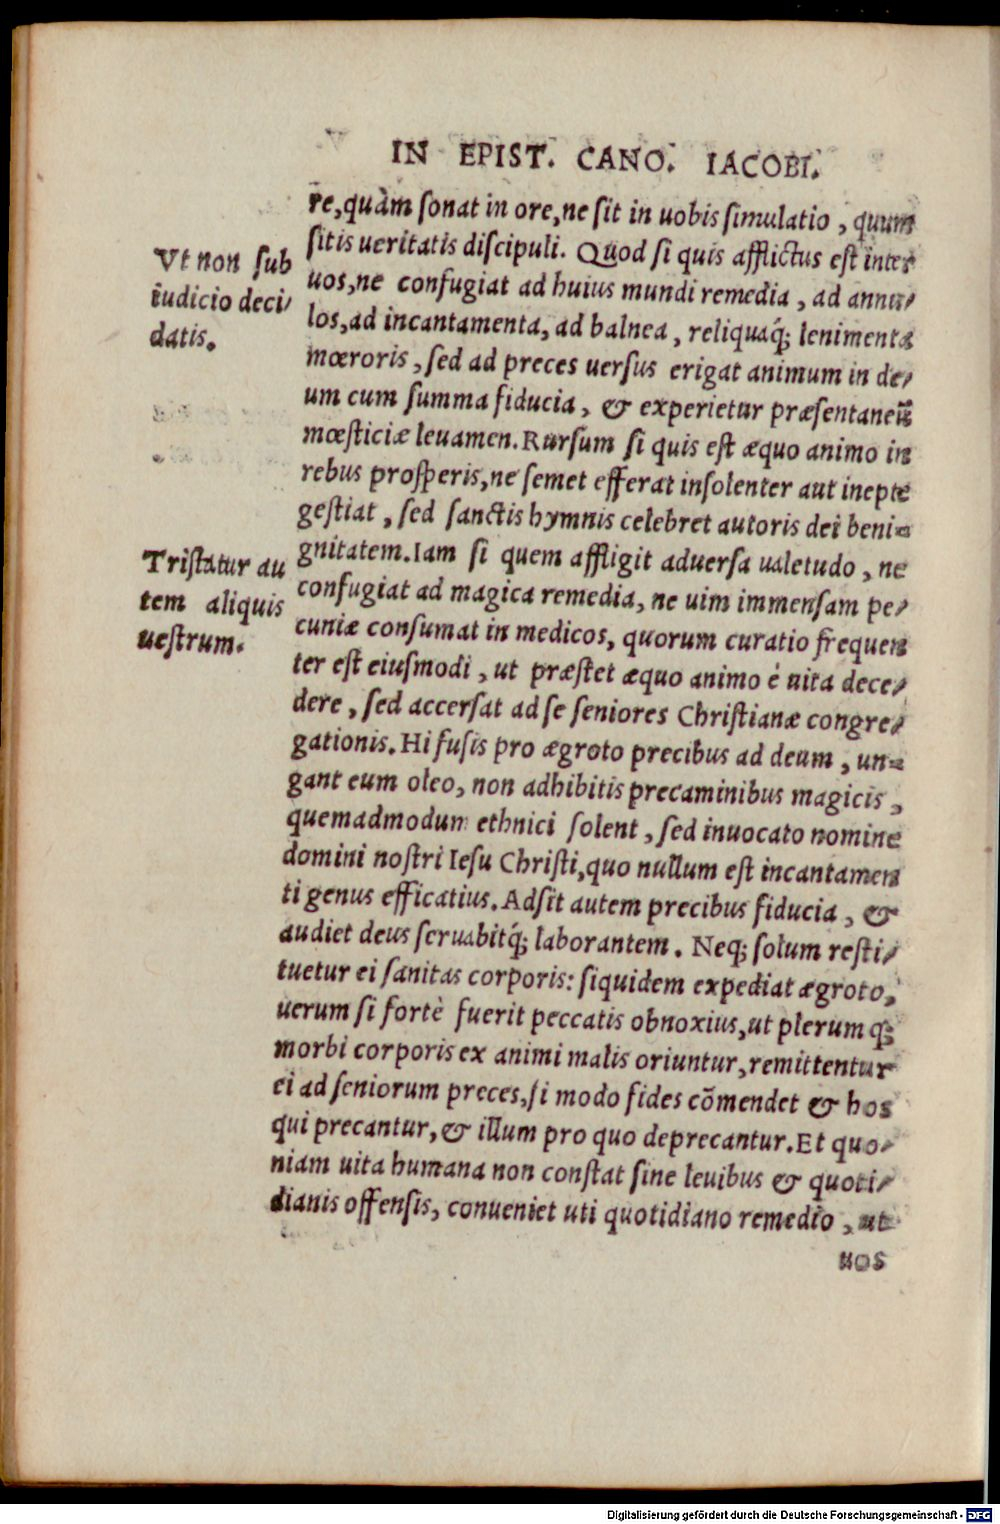 IN EPIST. CANO. IACOBI.
re, quàm ſonat in ore, ne ſit in uobis ſimulatio, quum
ſitis ueritatis diſcipuli. Quod ſi quis afflictus eſt inter
Vt non ſub
iudicio deci/
datis.
uos, ne confugiat ad huius mundi remedia, ad annu/
los, ad incantamenta, ad balnea, reliquaq; lenimenta
mœroris, ſed ad preces uerſus erigat animum in de/
um cum ſumma fiducia, & experietur præſentaneũ
mœſticiæ leuamen. Rurſum ſi quis eſt æquo animo in
rebus proſperis, ne ſemet efferat inſolenter aut inepte
geſtiat, ſed ſanctis hymnis celebret autoris dei beni=
gnitatem. Iam ſi quem affligit aduerſa ualetudo, ne
Triſtatur au
tem aliquis
ueſtrum.
confugiat ad magica remedia, ne uim immenſam pe/
cuniæ conſumat in medicos, quorum curatio frequen
ter eſt eiuſmodi, ut præſtet æquo animo è uita dece/
dere, ſed accerſat ad ſe ſeniores Chriſtianæ congre/
gationis. Hi fuſis pro ægroto precibus ad deum, un=
gant eum oleo, non adhibitis precaminibus magicis,
quemadmodum ethnici ſolent, ſed inuocato nomine
domini noſtri Ieſu Chriſti, quo nullum eſt incantamen
ti genus efficatius. Adſit autem precibus fiducia, &
audiet deus ſeruabitq́; laborantem. Neq; ſolum reſti/
tuetur ei ſanitas corporis: ſiquidem expediat ægroto,
uerum ſi fortè fuerit peccatis obnoxius, ut plerumq;
morbi corporis ex animi malis oriuntur, remittentur
ei ad ſeniorum preces, ſi modo fides cōmendet & hos
qui precantur, & illum pro quo deprecantur. Et quo/
niam uita humana non conſtat ſine leuibus & quoti/
dianis offenſis, conueniet uti quotidiano remedio, ut
nos
Digitalisierung gefördert durch die Deutsche Forschungsgemeinschaft - DFG